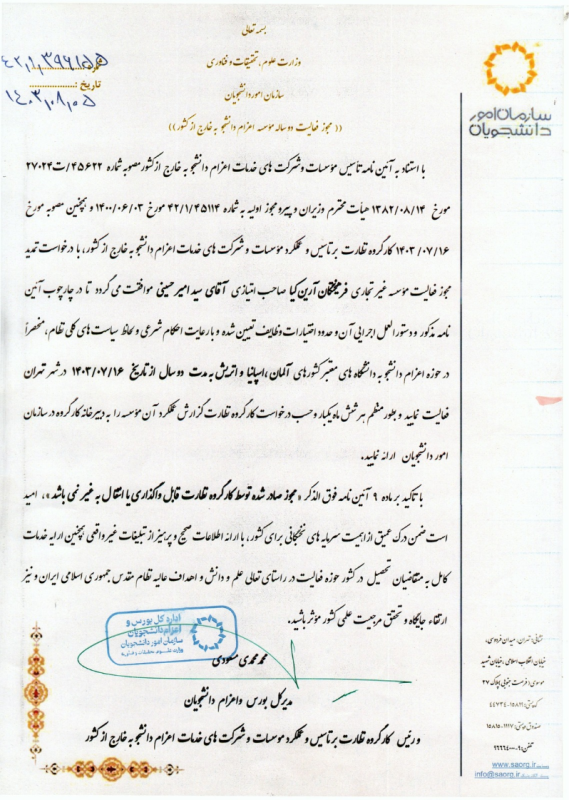 بسمه تعالی
وزارت علوم، تحقیقات و فناوری
سازمان امور دانشجویان
(( مجوز فعالیت دو ساله مؤسسه اعزام دانشجو به خارج از کشور ))
۴۲/۱/۳۹۶۱۵۵
تاریخ :
۱۴۰۳/۰۸/۰۵
سازمان امور
دانشجویان
با استناد به آئین نامه تأسیس مؤسسات و شرکت های خدمات اعزام دانشجو به خارج از کشور مصوبه شماره ۴۵۶۲۲/ت۲۷۰۲۴
مورخ ۱۳۸۲/۰۸/۱۴ هیأت محترم وزیران و پیرو مجوز اولیه به شماره ۴۲/۱/۴۵۱۱۴ مورخ ۱۴۰۰/۰۶/۰۳ و بهچنین مصوبه مورخ
۱۴۰۳/۰۷/۱۶ کارگروه نظارت بر تاسیس و عملکرد مؤسسات و شرکت های خدمات اعزام دانشجو به خارج از کشور، با درخواست تمدید
مجوز فعالیت مؤسسه غیر تجاری فرهیختگان آرین کیا صاحب امتیازی آقای سید امیر حسینی موافقت می گردد تا در چارچوب آئین
نامه مذکور و دستورالعمل اجرایی آن و حدود اختیارات وظایف تعیین شده و با رعایت احکام شرعی و لحاظ سیاست های کلی نظام، منحصراً
در حوزه اعزام دانشجو به دانشگاه های معتبر کشورهای آلمان، اسپانیا و اتریش به مدت دو سال از تاریخ ۱۴۰۳/۰۷/۱۶ در شهر تهران
فعالیت نمایید و بطور منظم هر شش ماه یکبار و حسب درخواست کارگروه نظارت گزارش عملکرد آن مؤسسه را به دبیرخانه کارگروه در سازمان
امور دانشجویان ارائه نمایید.
با تاکید بر ماده ۹ آئین نامه فوق الذکر « مجوز صادر شده توسط کارگروه نظارت قابل واگذاری یا انتقال به غیر نمی باشد »، امید
است ضمن درک عمیق از اهمیت سرمایه های نخبگانی برای کشور، با ارائه اطلاعات صحیح و پرهیز از تبلیغات غیر واقعی بهچنین ارایه خدمات
کامل به متقاضیان تحصیل در کشور حوزه فعالیت در راستای تعالی علم و دانش و اهداف عالیه نظام مقدس جمهوری اسلامی ایران و نیز
ارتقاء جایگاه و تحقق مرجعیت علمی کشور مؤثر باشید.
اداره کل بورس و
اعزام دانشجویان
سازمان امور دانشجویان
وزارت علوم، تحقیقات و فناوری
محمد محمدی مسعودی
مدیر کل بورس و اعزام دانشجویان
و رئیس کارگروه نظارت بر تاسیس و عملکرد مؤسسات و شرکت های خدمات اعزام دانشجو به خارج از کشور
نشانی: تهران، میدان فردوسی،
خیابان انقلاب اسلامی، خیابان شهید
موسوی (فرصت جنوبی) پلاک ۲۷
کدپستی: ۱۵۸۶۱-۴۴۷۳۴
صندوق پستی: ۱۱۱۷-۱۵۸۱۵
www.saorg.ir
info@saorg.ir